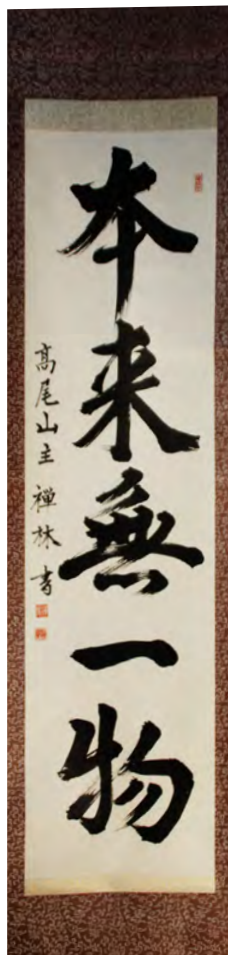 本来無一物
高尾山主 禅林 書